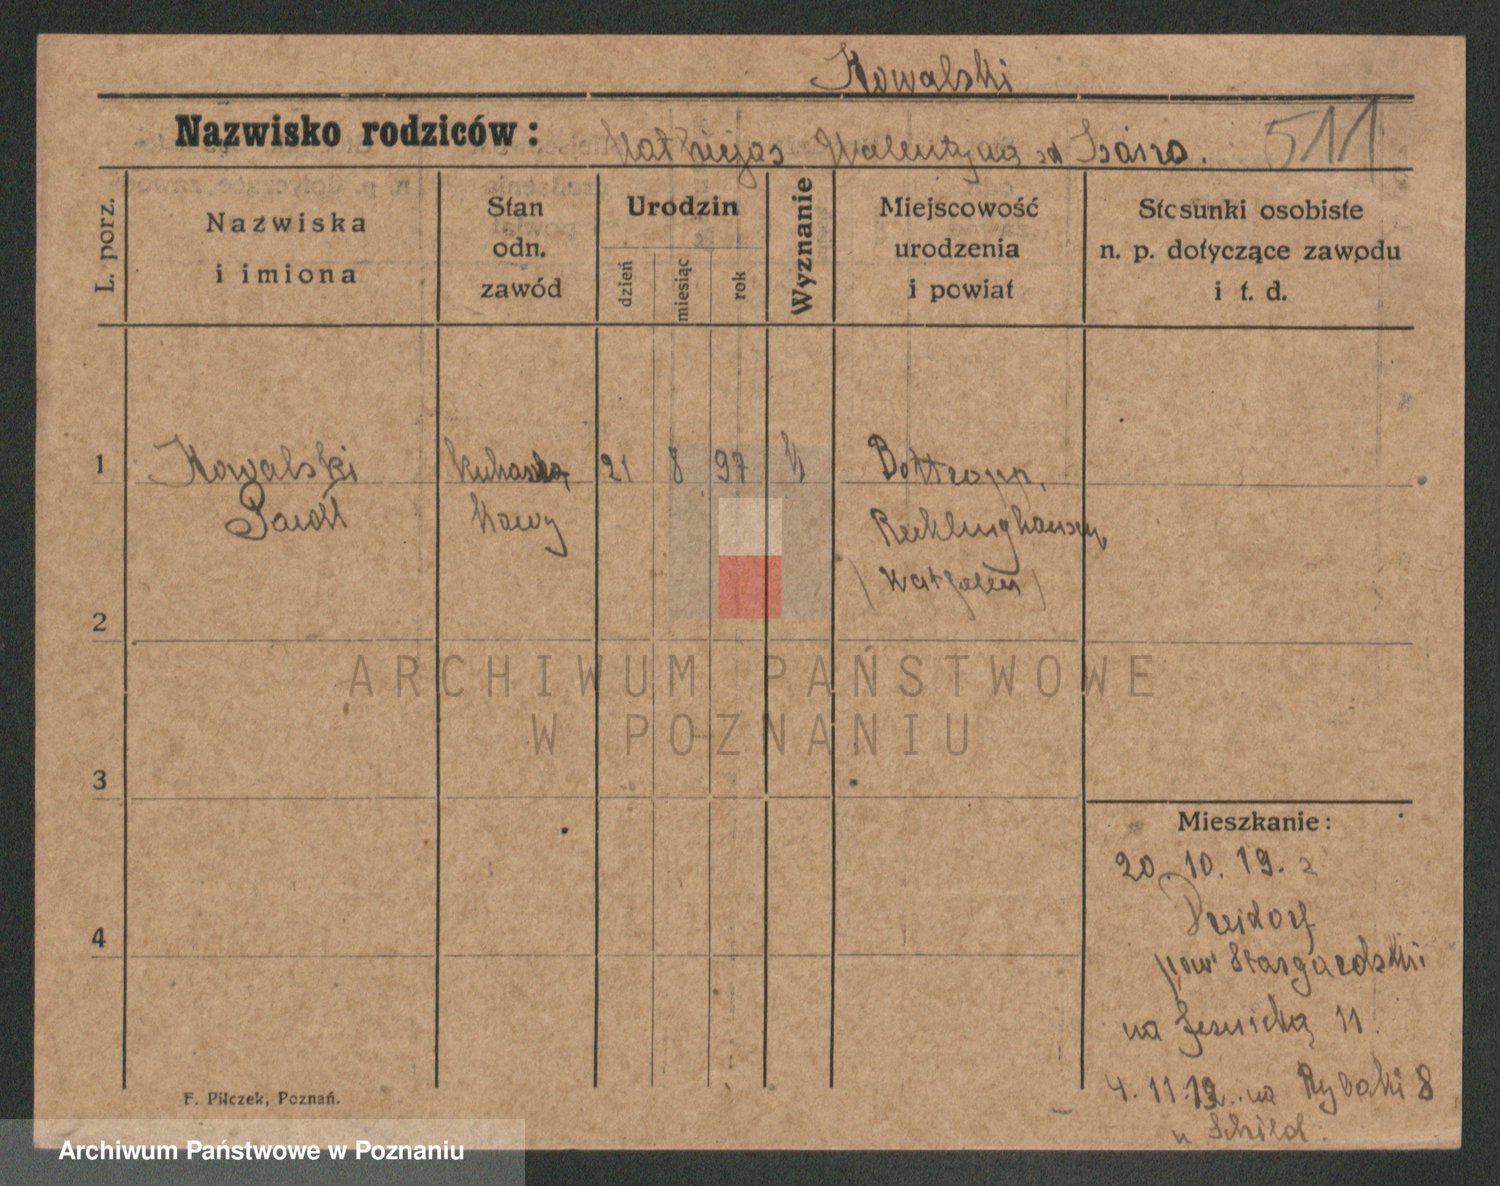 Kowalski
Nazwisko rodziców: Walentyna
511
L. porz.
Nazwiska
i imiona
Stan
odn.
zawód
Urodzin
dzień
miesiąc
rok
Wyznanie
Miejscowość
urodzenia
i powiat
Stosunki osobiste
n. p. dotyczące zawodu
i t. d.
1 Kowalski 21 8 97 Bottropp,
Recklinghausen,
2
ARCHIWUM PAŃSTWOWE
W POZNANIU
3
4
Mieszkanie:
20.10.19. z
pow Stargardzki
na 11.
4.11.19. na Rybaki 8
u Schild.
F. Pilczek, Poznań.
Archiwum Państwowe w Poznaniu